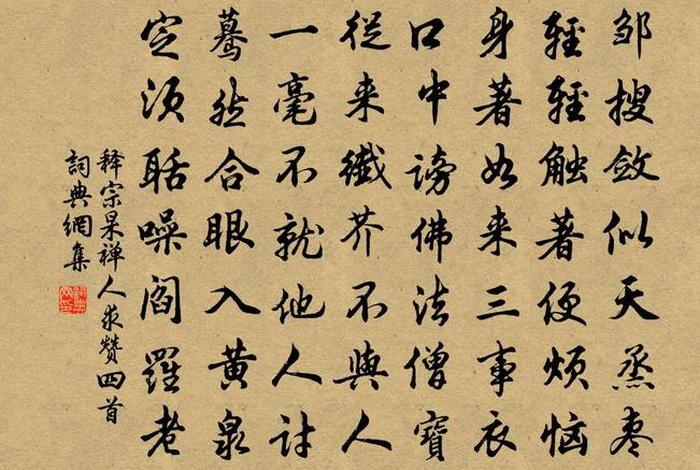 邹搜敛似天蒸枣
轻轻触著便烦恼
身著如来三事衣
口中谤佛法僧宝
從来纖芥不與人
一毫不就他人讨
蓦然合眼入黄泉
定须聒噪阎羅老
释宗杲禅人求赞四首
詞典網集